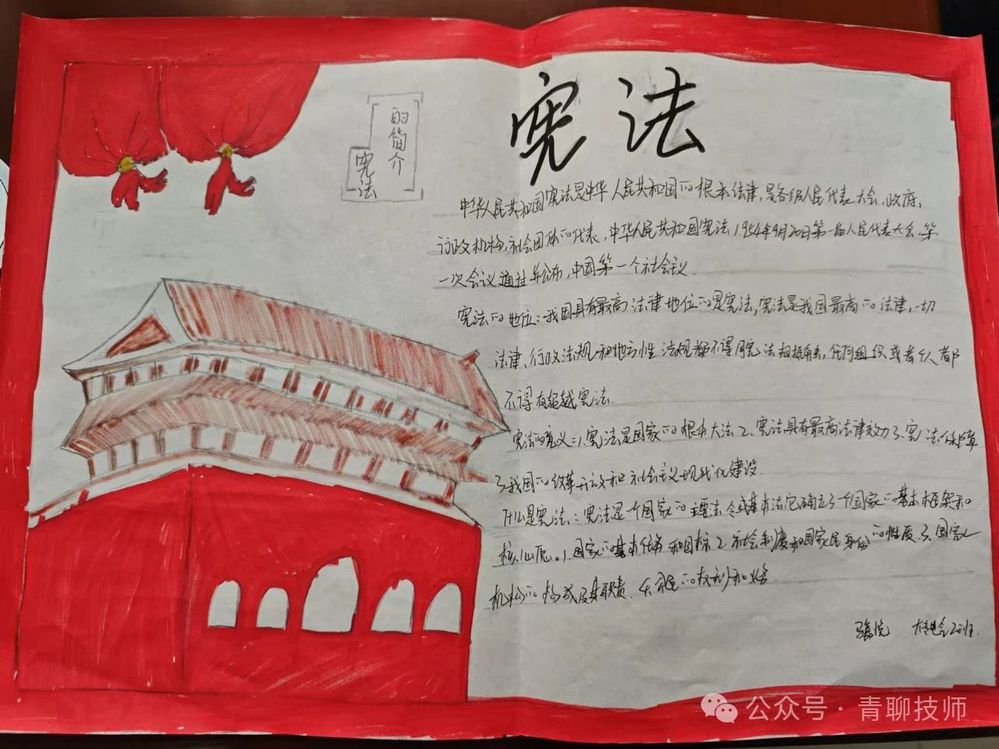 宪法
宪法的简介
中华人民共和国宪法是中华人民共和国的根本法律,是各级人民代表大会、政府,
行政机构,社会团体的代表,中华人民共和国宪法,1954年9月20日第一届人民代表大会、第
一次会议通过并公布,中国第一个社会主义
宪法的地位:我国具有最高法律地位的是宪法,宪法是我国最高的法律,一切
法律、行政法规和地方性法规都不得同宪法相抵触,任何组织或者个人都
不得有超越宪法
宪法的意义:1、宪法是国家的根本大法2、宪法具有最高法律效力3、宪法保障
了我国的改革开放和社会主义现代化建设
什么是宪法:宪法是一个国家的主要法令或基本法它确立了一个国家的基本框架和
核心。1、国家的基本任务和目标2、社会制度和国家的性质3、国家
机构的构成及其职责、的权利和义务
公众号·青聊技师